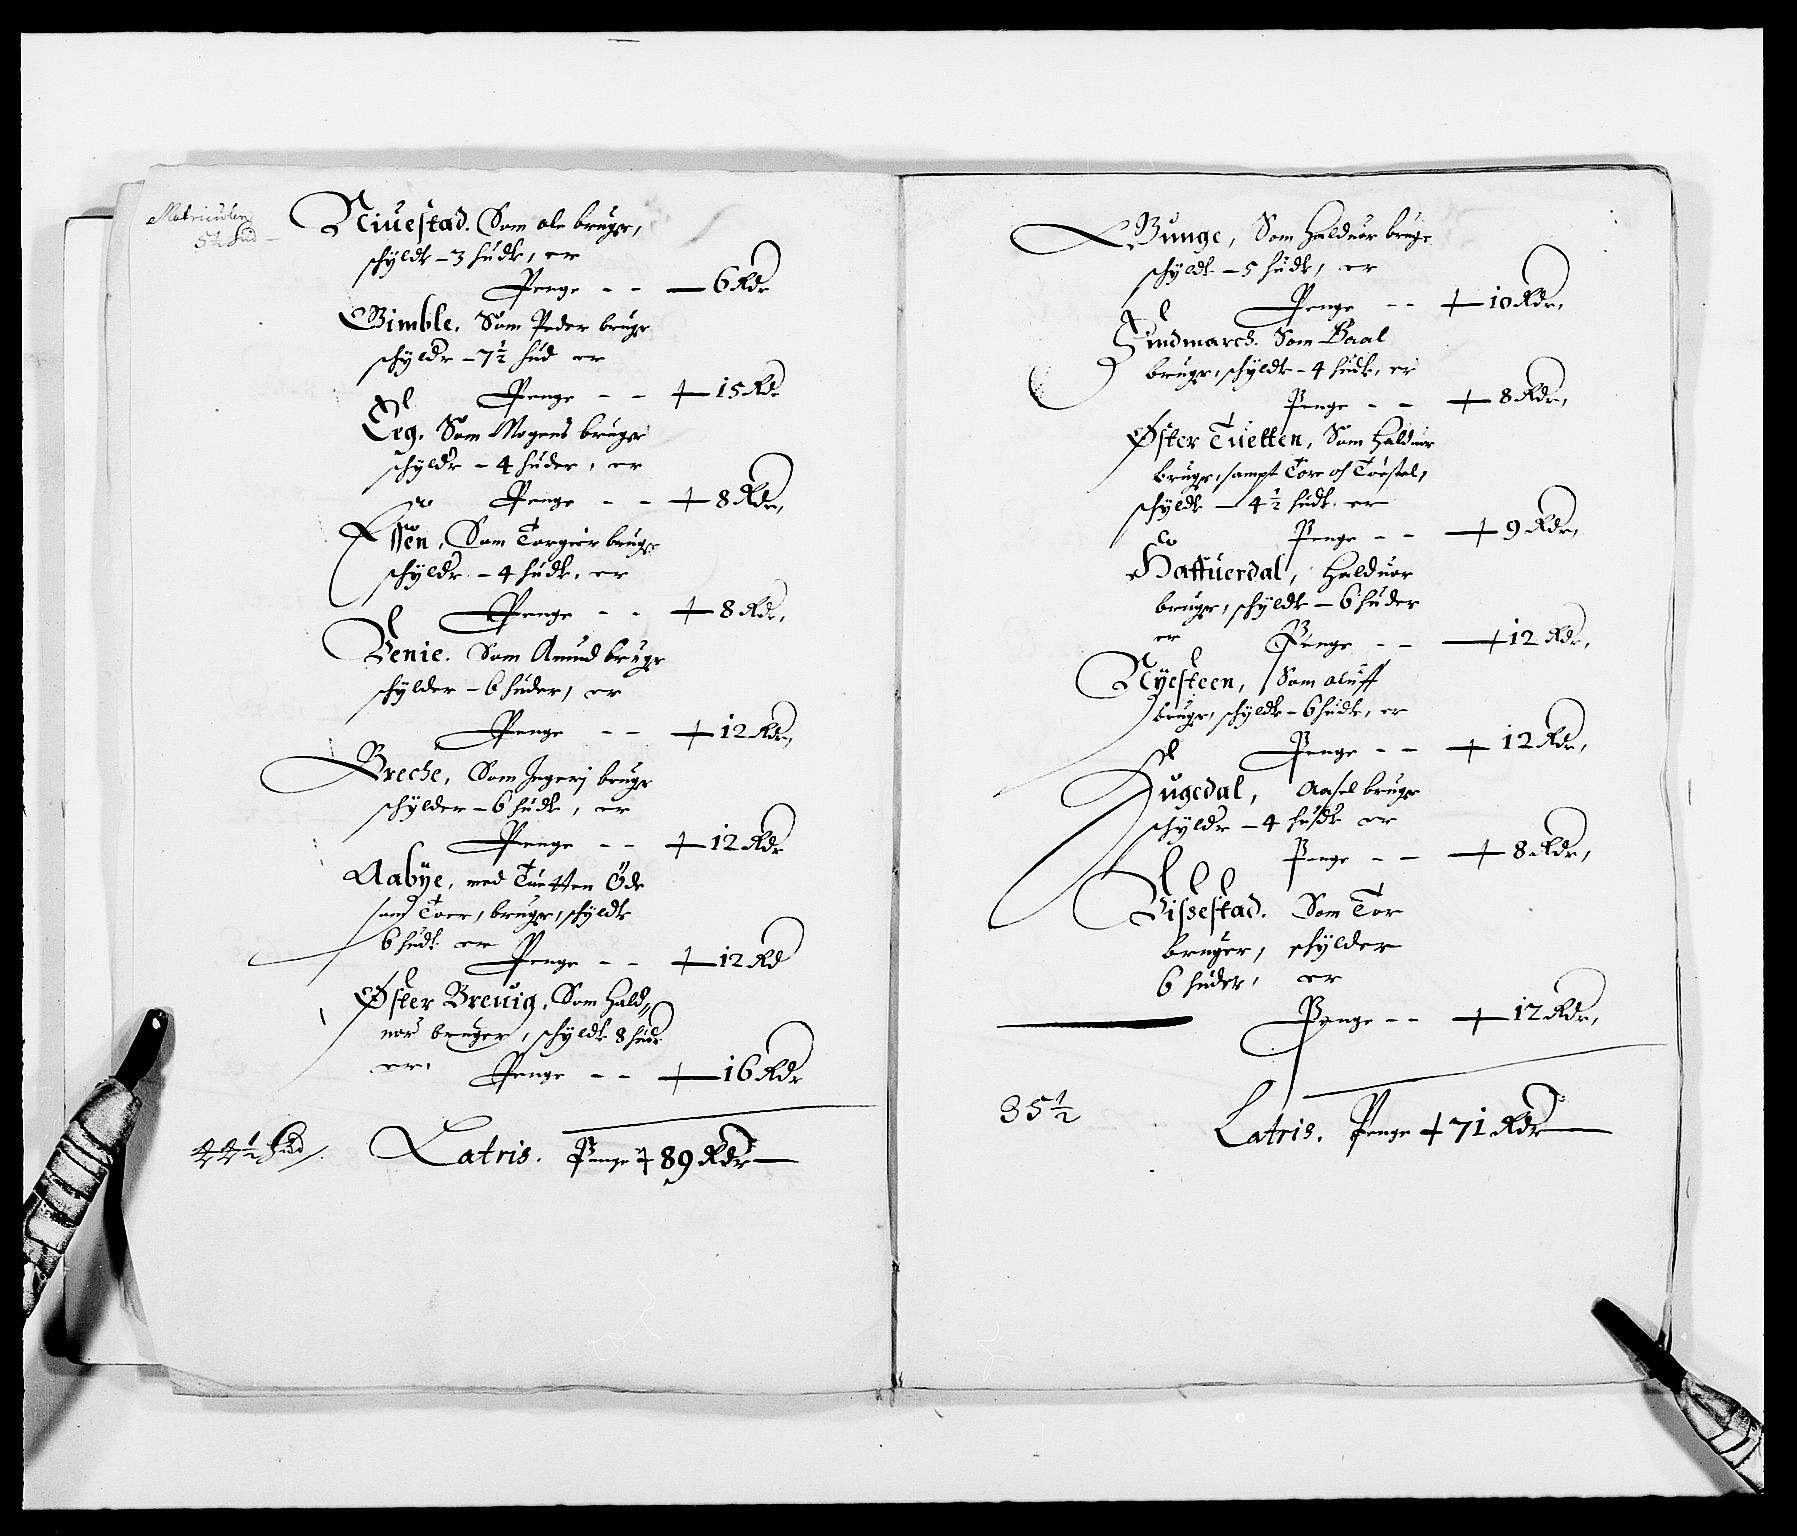 Matriculen
5½ hud
Niuestad. Som ole bruger,
schyldr – 3 huder, er
Penge – – — 6 Rdr
Bimble. Som Peder bruger
schyldr – 7½ hud er
Penge – – 15 Rdr
Eeg. Som Mogens bruger
schyldr – 4 huder, er
Penge – – 8 Rdr,
Essen, Som Torgier bruger
schyldr – 4 huder, er
Penge – – 8 Rdr,
Venie. Som Amund bruger
schylder – 6 huder, er
Penge – – 12 Rdr,
Breche, Som Ingerj bruger
schylder – 6 huder, er
Penge – – 12 Rdr
Aabye, med Tuetten Öde
som Toer, bruger, schyldr
6 huder er Penge – – 12 Rd
Øster Breuig. Som Hald„
uor bruger, schyldr 8 hude
er. Penge – – 16 Rdr
44½ hud/. Latris. Penge 89 Rdr —
Bunge, Som Halduor bruger
schyldr – 5 huder, er
Penge – – 10 Rdr,
Findmarch. Som Paal
bruger, schyldr – 4 huder, er
Penge – – 8 Rdr,
Øster Tuetten, Som Halduor
bruger, sampt Tore och Torstel,
schyldr – 4½ huder er
Penge – – 9 Rdr,
Haffuerdal, Halduor
bruger, schyldr – 6 huder
er Penge – – 12 Rdr,
Nyesteen, Som oluff
bruger, schyldr – 6 huder, er
Penge – – 12 Rdr,
Hugedal, Aasel bruger
schyldr – 4 huder er
Penge – – 8 Rdr,
Vissestad. Som Tor
bruger, schylder
6 huder, er
Penge – – 12 Rdr,
35½ Latris. Penge 71 Rdr —